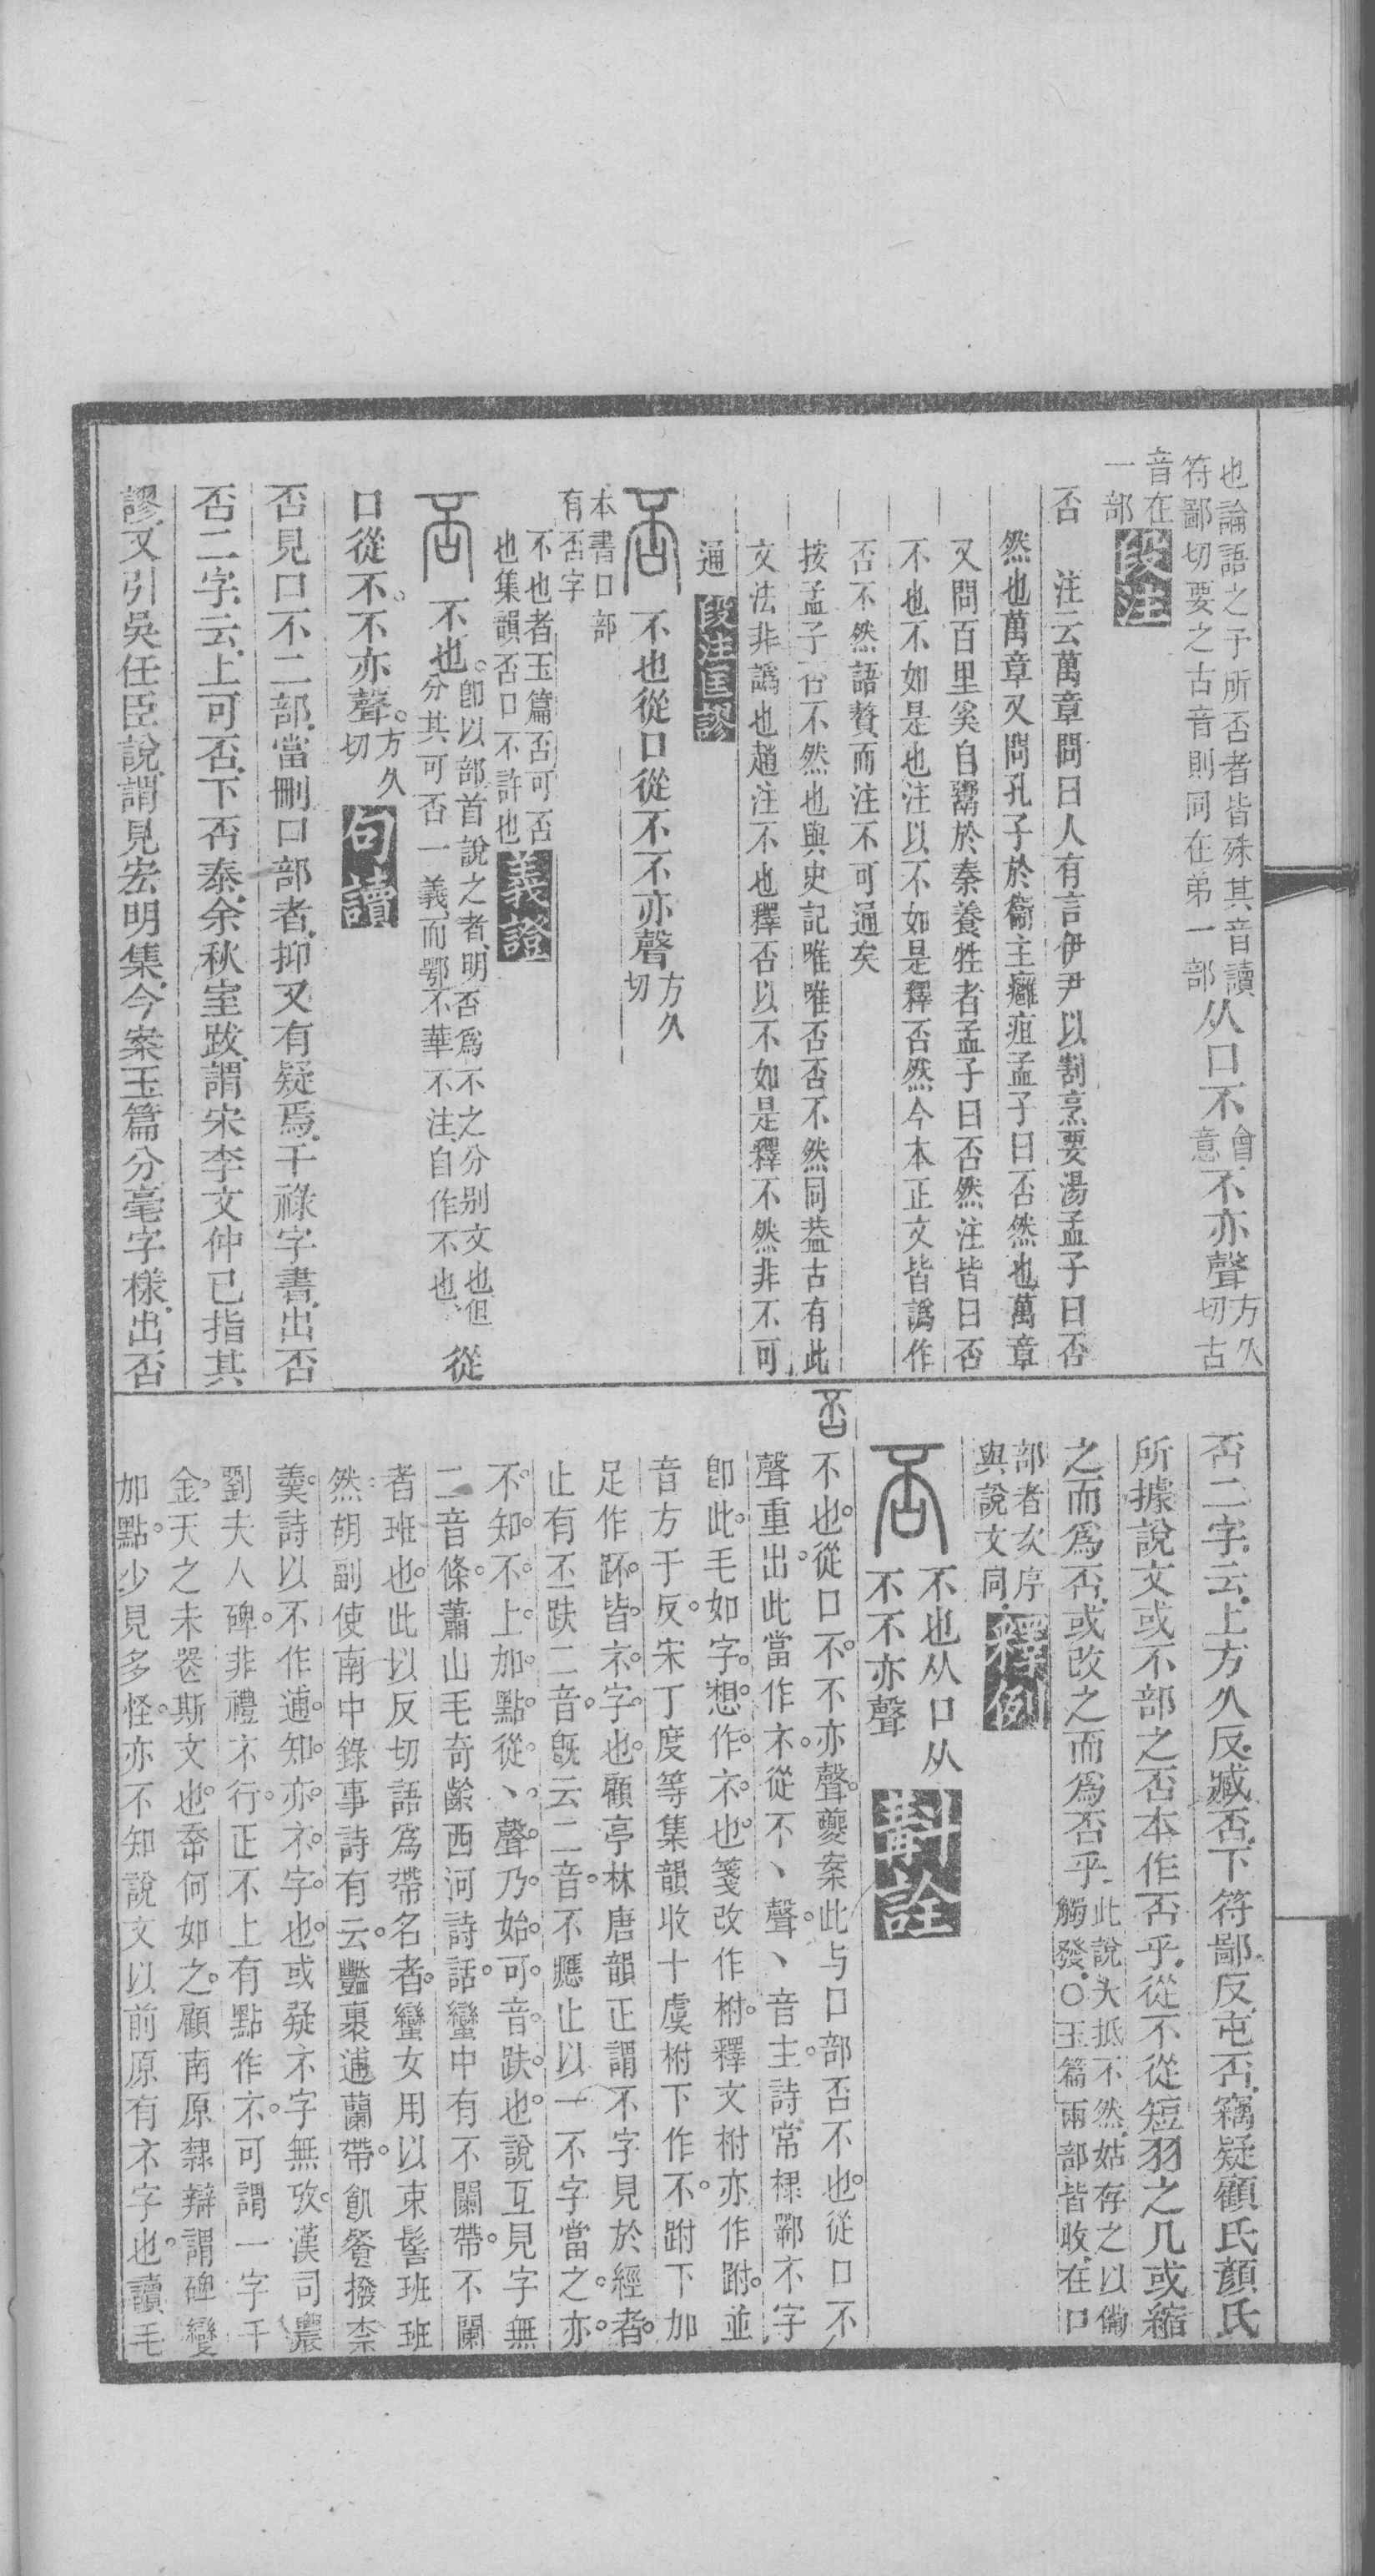 也論語之予所否者皆殊其音讀
符鄙切要之古音則同在弟一部
从口不
會意
不亦聲
方久切古
音在一部
段注
否　注云萬章問曰人有言伊尹以割烹要湯孟子曰否
然也萬章又問孔子於衞主癰疽孟子曰否然也萬章
又問百里奚自鬻於秦養牲者孟子曰否然注皆曰否
不也不如是也注以不如是釋否然今本正文皆譌作
否不然語贅而注不可通矣
按孟子否不然也與史記唯唯否否不然同葢古有此
文法非譌也趙注不也釋否以不如是釋不然非不可
通
段注匡謬
否
不也從口從不不亦聲
方久切
本書口部
有否字
不也者玉篇否可否
也集韻否口不許也
義證
否
不也。
卽以部首說之者明否爲不之分別文也但
分其可否一義而鄂不華不注自作不也
從
口從不。不亦聲。
方久切
句讀
否見口不二部當刪口部者抑又有疑焉干祿字書出否
否二字云上可否下否泰余秋室跋謂宋李文仲已指其
謬又引吳任臣說謂見宏明集今案玉篇分毫字樣出否
否二字云上方久反臧否下符鄙反屯否竊疑顧氏顏氏
所據說文或不部之否本作否乎從不從短羽之几或縮
之而爲否或改之而爲否乎
此說大抵不然姑存之以僃
觸發○玉篇兩部皆收在口
部者次序
與說文同
釋例
否
不也从口从
不不亦聲
斠詮
否
不也。從口不。不亦聲。夔案此与口部否不也。從口不
聲重出。此當作㐀。從不丶聲。丶音主。詩常棣鄂不字
卽此。毛如字。想作不也。箋改作柎。釋文柎亦作跗。並
音方于反。宋丁度等集韻收十虞柎下作不。跗下加
足作䟔。皆不字也。顧亭林唐韻正謂不字見於經者。
止有丕趺二音。旣云二音。不應止以一不字當之。亦
不知。不上加點從丶聲。乃始可音趺也。說互見字無
二音條。蕭山毛奇齡西河詩話。蠻中有不闌帶。不闌
者班也。此以反切語爲帶名者。蠻女用以束髻班班
然。胡副使南中錄事詩有云。豔裹逋蘭帶。飢餐撥柰
羹。詩以不作逋。知亦不字也。或疑不字無攷。漢司農
劉夫人碑。非禮不行。正不上有點作不。可謂一字千
金。天之未喪斯文也。奈何如之。顧南原隸辯謂碑變
加點。少見多怪。亦不知說文以前原有不字也。讀毛